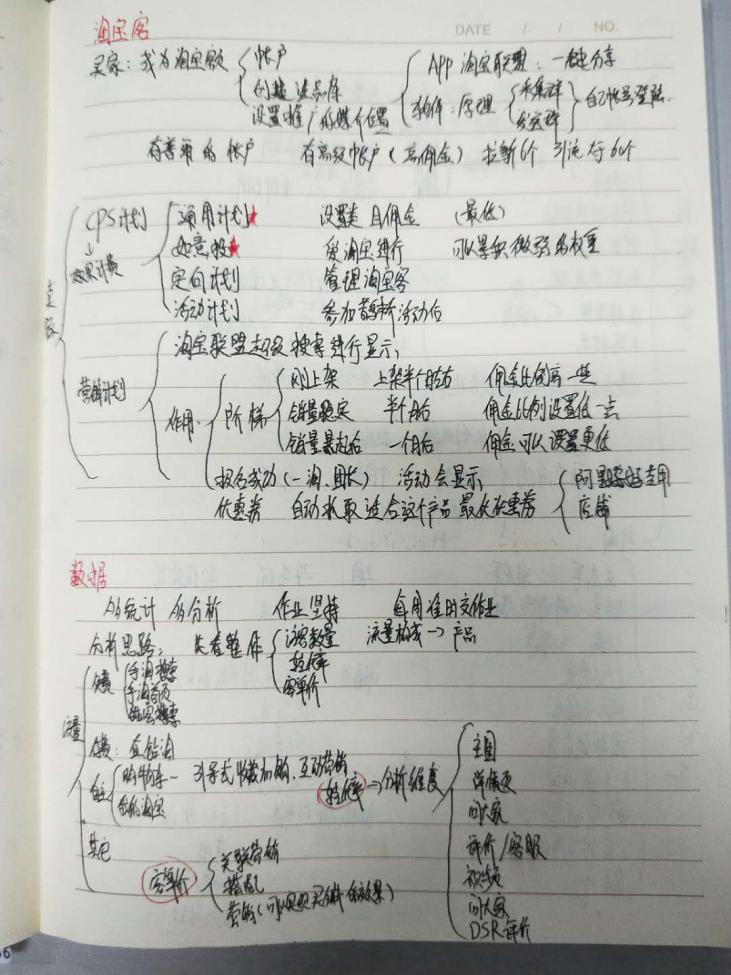 淘宝客
DATE / / NO.
买家：成为淘宝客 帐户 APP 淘宝联盟：一键分享
创建选品库 软件：原理 采集群 自己帐号登陆.
设置推广的媒介位置 发宝群
有普通的帐户 有高级帐户（高佣金） 拉新6个 引流
CPS计划 通用计划★ 设置类目佣金 （最低）
如意投★ 淘宝进行 可以累积微弱的权重
效果计费
定向计划 管理淘宝客
卖家
活动计划 参加鹊桥活动后
淘宝联盟超级搜索进行显示，
营销计划
作用. 阶梯 刚上架 上架半个月左右 佣金比例高一些
销量稳定 半个月后 佣金比例设置低一点
销量最起后 一个月后 佣金可以设置更低
报名成功（一淘、团长） 活动会显示
优惠券 自动抓取适合这个产品最优优惠券 阿里妈妈专用
店铺
数据
会统计 会分析 作业坚持 每周准时交作业
分析思路： 先看整体 访客数量 流量构成→产品
转化率
客单价
流量
免费 手淘搜索
手淘首页
付费：直钻淘
自主 购物车— 引导式收藏加购、互动营销
我的淘宝
转化率→分析维度 主图
详情页
问大家
评价/客服
视频
问大家
DSR评价
其它
客单价 关联营销
搭配
营销（可以几件的效果）